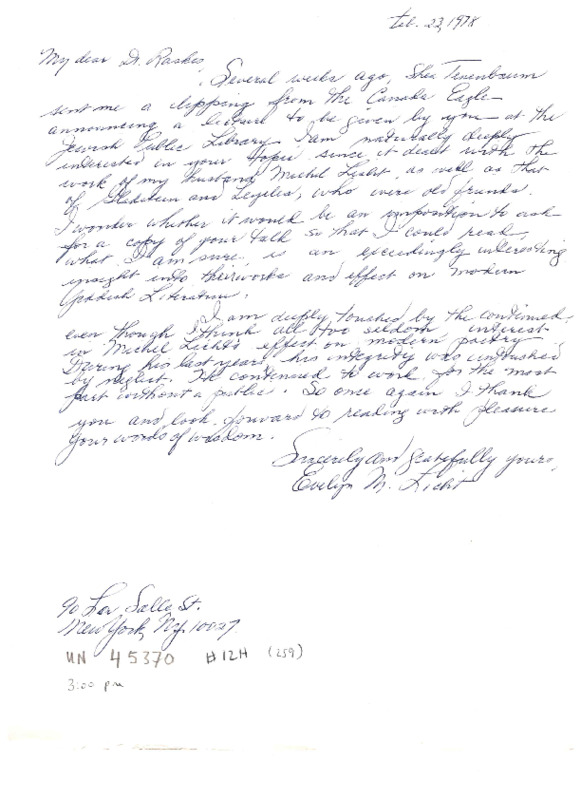 Feb. 23, 1978
My dear Dr. Raskes,
Several weeks ago, Shea Tenenbaum
sent me a clipping from the Canada Eagle
announcing a lecture to be given by you at the
Jewish Public Library. I am naturally deeply
interested in your topic since it dealt with the
work of my husband Michel Licht, as well as that
of Glatstein and Leyeles, who were old friends.
I wonder whether it would be an imposition to ask
for a copy of your talk so that I could read,
what I am sure, is an exceedingly interesting
insight into their works and effect on modern
Yiddish Literature.
I am deeply touched by the continued,
even though I think all too seldom, interest
in Michel Licht's effect on modern poetry.
During his last years, his integrity was untouched
by neglect. He continued to work for the most
part without a public. So once again I thank
you and look forward to reading with pleasure
your words of wisdom.
Sincerely and gratefully yours,
Evelyn M. Licht
90 La Salle St.
New York, N.Y. 10027
UN 45370 #12H (259)
3:00 pm